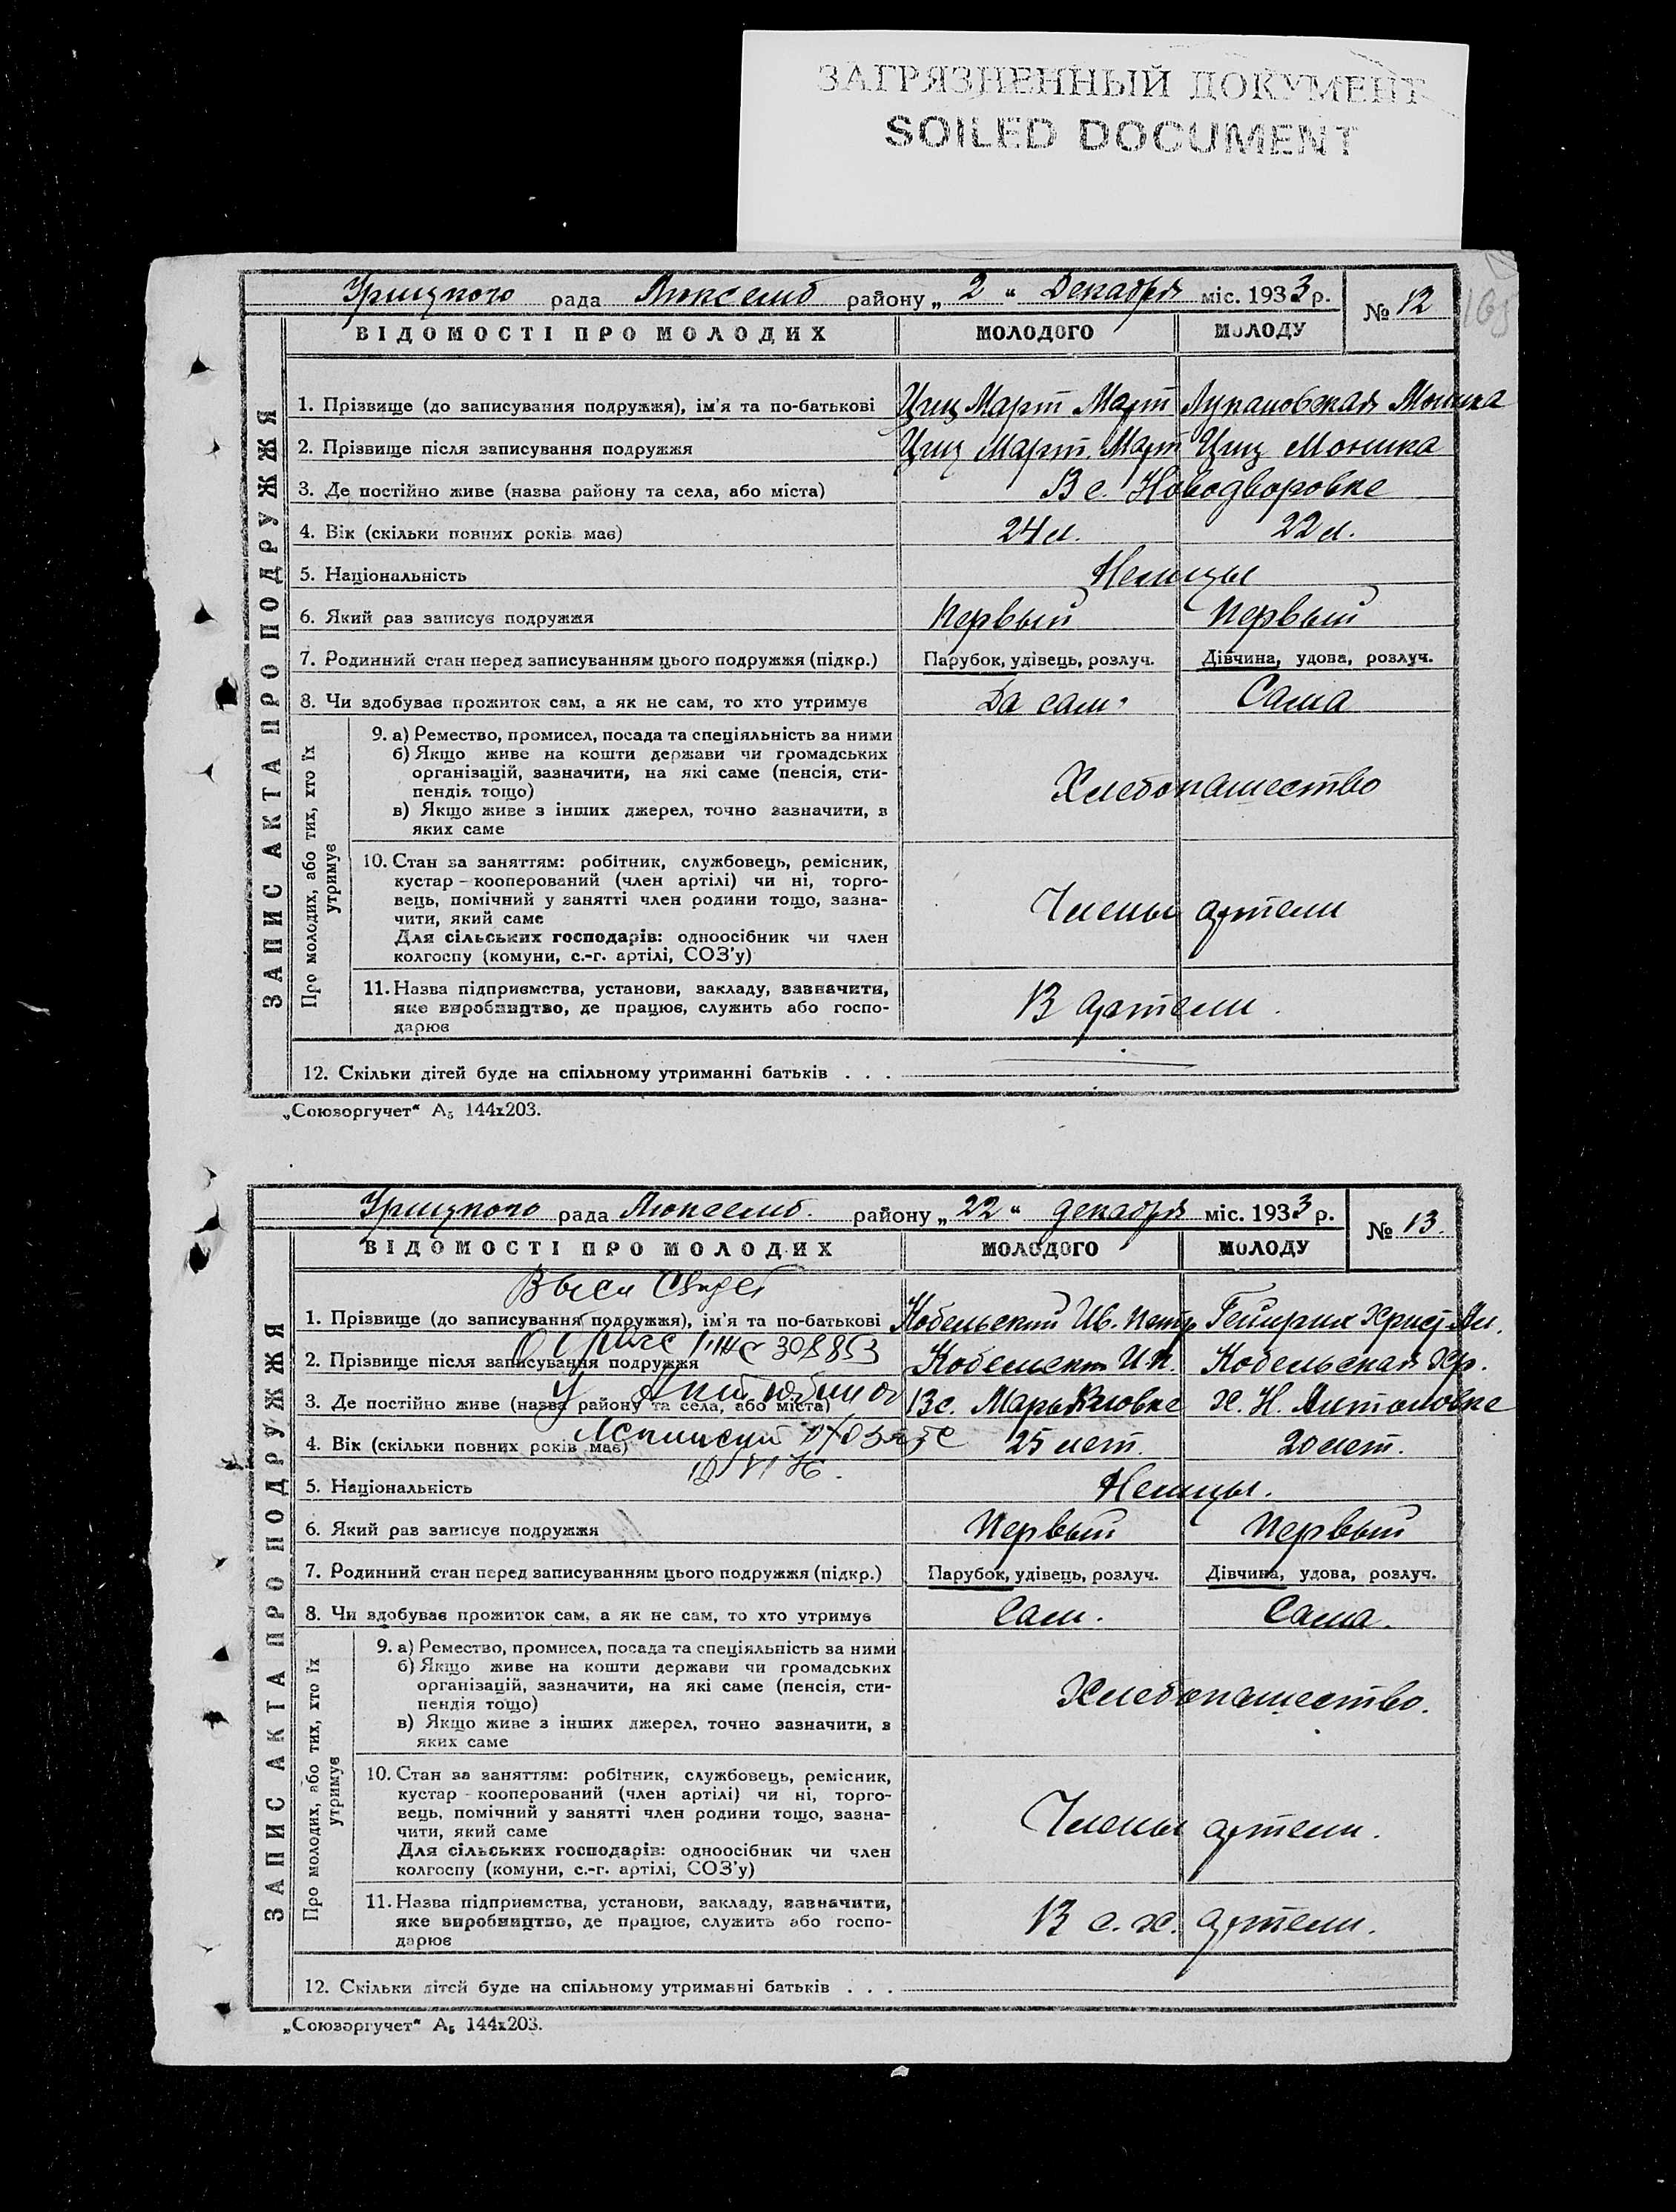 ЗАГРЯЗНЕННЫЙ ДОКУМЕНТ
SOILED DOCUMENT
Урицкого рада Люксемб району „ 2 “ Декабря міс. 1933 р.
№ 12
ВІДОМОСТІ ПРО МОЛОДИХ МОЛОДОГО МОЛОДУ
ЗАПИС АКТА ПРО ПОДРУЖЖЯ
1. Прізвище (до записування подружжя), ім'я та по-батькові Циц Март Март Лукановская Моника
2. Прізвище після записування подружжя Циц Март. Март Циц Моника
3. Де постійно живе (назва району та села, або міста) В с. Новодворовке
4. Вік (скільки повних років має) 24 л. 22 л.
5. Національність Немцы
6. Який раз записує подружжя Первый Первый
7. Родинний стан перед записуванням цього подружжя (підкр.) Парубок, удівець, розлуч. Дівчина, удова, розлуч.
8. Чи здобуває прожиток сам, а як не сам, то хто утримує Да сам. Сама
Про молодих, або тих, хто їх утримує
9. а) Ремество, промисел, посада та спеціяльність за ними
б) Якщо живе на кошти держави чи громадських
організацій, зазначити, на які саме (пенсія, сти-
пендія тощо)
Хлебопашество
в) Якщо живе з інших джерел, точно зазначити, з
яких саме
10. Стан за заняттям: робітник, службовець, ремісник,
кустар - кооперований (член артілі) чи ні, торго-
вець, помічний у занятті член родини тощо, зазна-
чити, який саме
Члены артели
Для сільських господарів: одноосібник чи член
колгоспу (комуни, с.-г. артілі, СОЗ'у)
11. Назва підприємства, установи, закладу, зазначити,
яке виробництво, де працює, служить або госпо-
дарює
В артели.
12. Скільки дітей буде на спільному утриманні батьків . . .
„Союзоргучет“ А₅ 144х203.
Урицкого рада Люксемб. району „ 22 “ декабря міс. 1933 р.
№ 13.
ВІДОМОСТІ ПРО МОЛОДИХ МОЛОДОГО МОЛОДУ
ЗАПИС АКТА ПРО ПОДРУЖЖЯ
1. Прізвище (до записування подружжя), ім'я та по-батькові Кобельский Ив. Петр Гейнрих Христ. Ан.
308853
2. Прізвище після записування подружжя Кобельский И. П. Кобельская Хр.
3. Де постійно живе (назва району та села, або міста) В с. Марьяновке Х. Н. Антоновке
4. Вік (скільки повних років має) 25 лет. 20 лет.
5. Національність Немцы.
6. Який раз записує подружжя Первый Первый
7. Родинний стан перед записуванням цього подружжя (підкр.) Парубок, удівець, розлуч. Дівчина, удова, розлуч.
8. Чи здобуває прожиток сам, а як не сам, то хто утримує Сам. Сама.
Про молодих, або тих, хто їх утримує
9. а) Ремество, промисел, посада та спеціяльність за ними
б) Якщо живе на кошти держави чи громадських
організацій, зазначити, на які саме (пенсія, сти-
пендія тощо)
Хлебопашество.
в) Якщо живе з інших джерел, точно зазначити, з
яких саме
10. Стан за заняттям: робітник, службовець, ремісник,
кустар - кооперований (член артілі) чи ні, торго-
вець, помічний у занятті член родини тощо, зазна-
чити, який саме
Члены артели.
Для сільських господарів: одноосібник чи член
колгоспу (комуни, с.-г. артілі, СОЗ'у)
11. Назва підприємства, установи, закладу, зазначити,
яке виробництво, де працює, служить або госпо-
дарює
В с. х. артели.
12. Скільки дітей буде на спільному утриманні батьків . . .
„Союзоргучет“ А₅ 144х203.